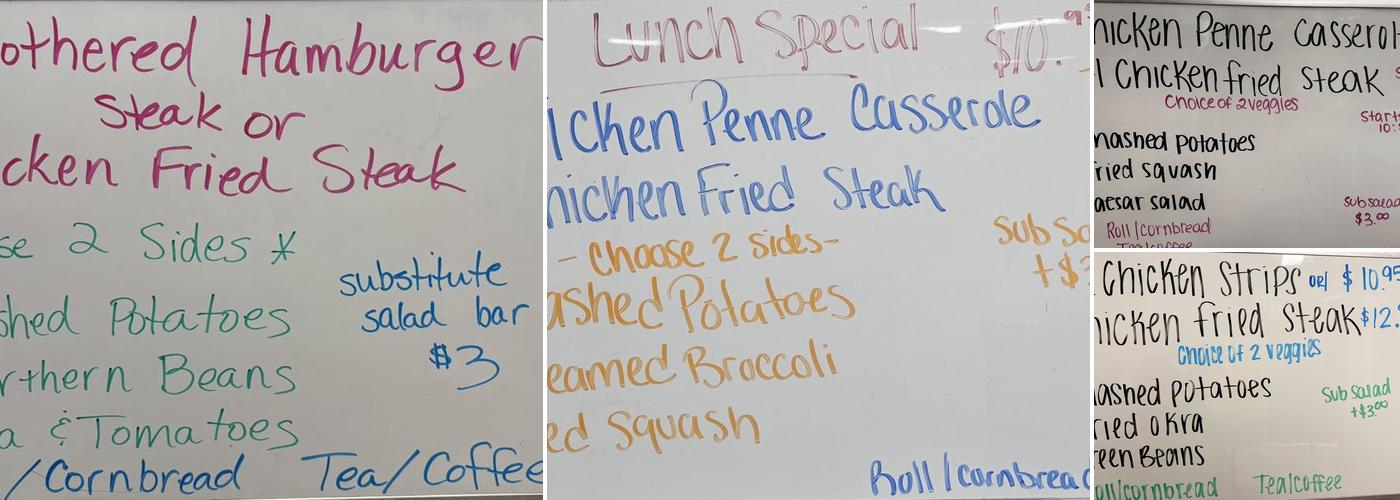 othered Hamburger
Steak or
cken Fried Steak
se 2 Sides *
shed Potatoes
rthern Beans
a & Tomatoes
substitute
salad bar
$3
/Cornbread Tea/Coffee
Lunch Special $10.
icken Penne Casserole
hicken Fried Steak
- Choose 2 sides-
ashed Potatoes
eamed Broccoli
ed Squash
Sub Sa
+$3
Roll/cornbread
hicken Penne Casserol
Chicken fried steak
Choice of 2 veggies
mashed potatoes
ried squash
aesar salad
Start
10:
Sub salad
$3.00
Roll/cornbread
Tea/coffee
Chicken Strips or/ $10.95
hicken fried Steak $12.
Choice of 2 veggies
ashed potatoes
ried okra
reen Beans
Sub salad
+$3.00
oll/cornbread Tea/coffee